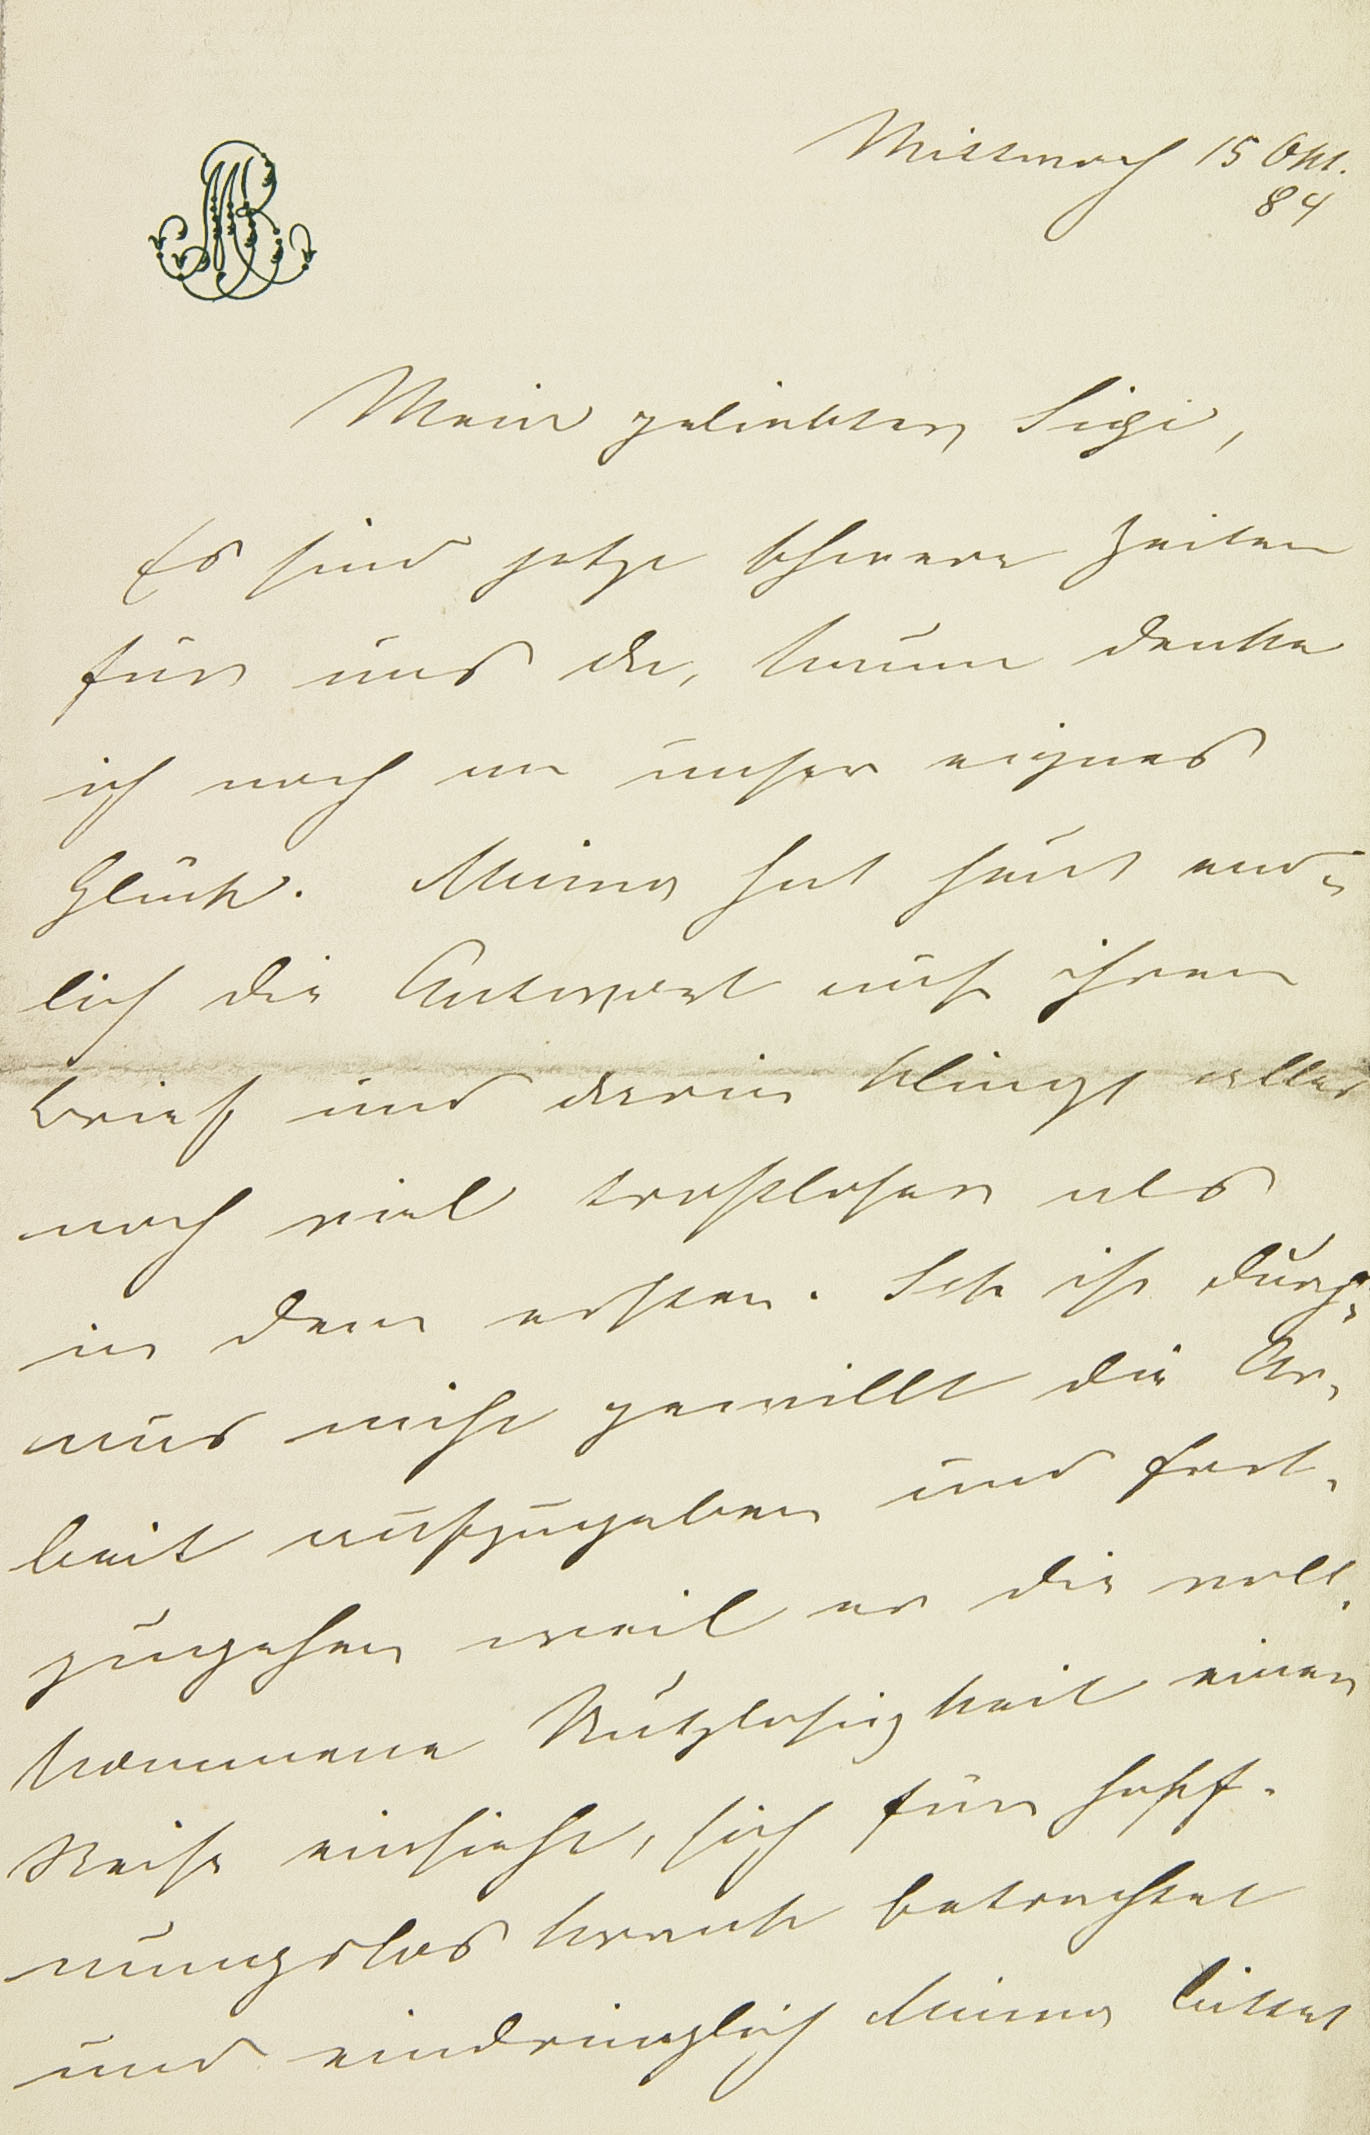 MB
Mittwoch 15 Okt.
84
Mein geliebter Sigi,
Es sind jetzt schwere Zeiten
für uns da, kaum denke
ich noch an unser eignes
Glück. Minna hat heut end-
lich die Antwort auf ihren
Brief und darin klingt alles
noch viel trostloser als
in dem ersten. Sch ist durch-
aus nicht gewillt die Ar-
beit aufzugeben und fort-
zugehen weil er die voll-
kommene Nutzlosigkeit einer
Reise einsieht, sich für hoff-
nungslos krank betrachtet
und eindringlich Minna bittet